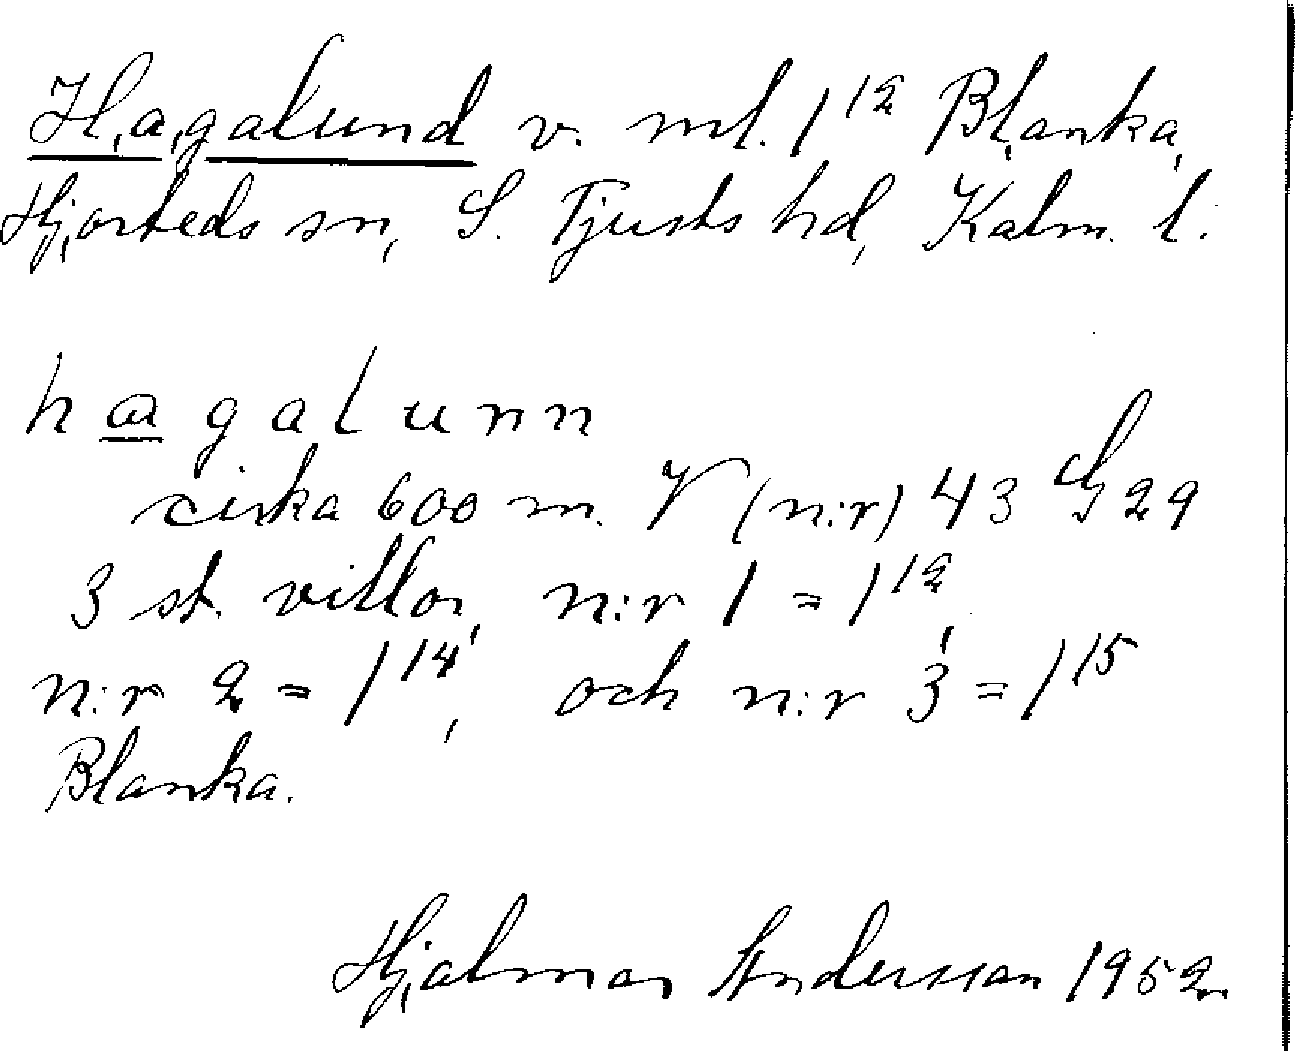 Hagalund v. ml. 1¹² Blanka,
Hjorteds sn, S. Tjusts hd, Kalm. l.
hagalunn
cirka 600 m. V (n:r) 43 G 29
3 st. villor, n:r 1 = 1¹²,
n:r 2 = 1¹⁴, och n:r 3 = 1¹⁵
Blanka.
Hjalmar Andersson 1952